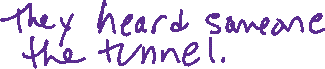 They heard someone
the tunnel.